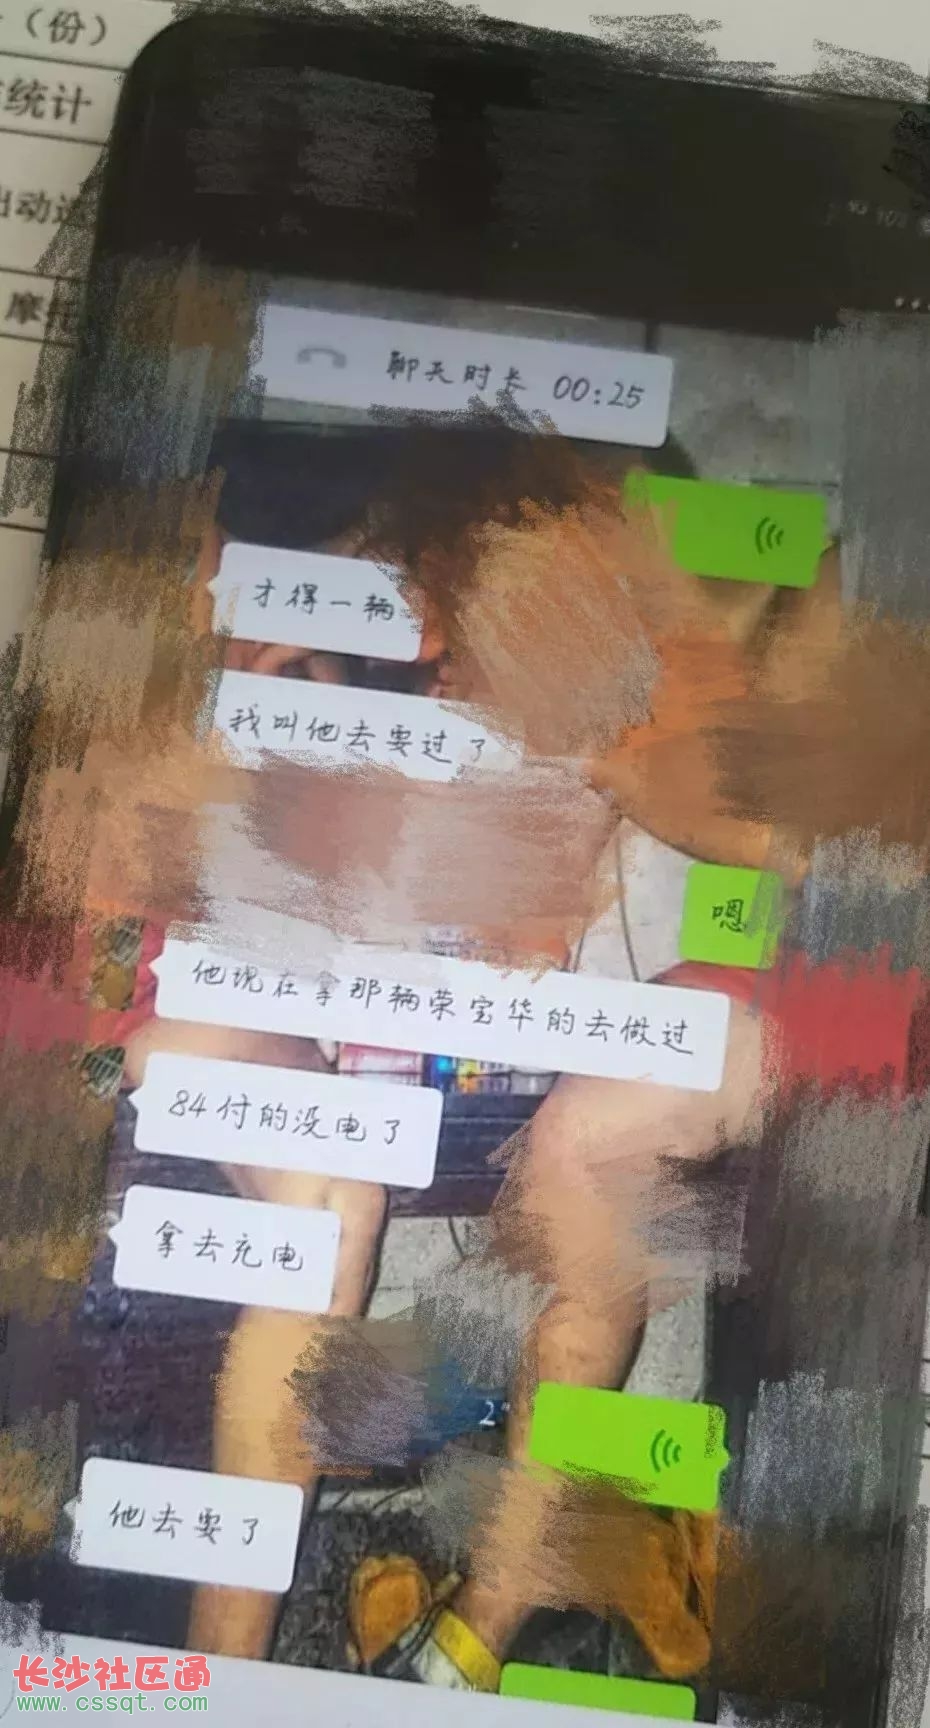 （份）
统计
出动
摩
聊天时长 00:25
才得一辆
我叫他去要过了
嗯
他现在拿那辆荣宝华的去做过
84付的没电了
拿去充电
2"
他去要了
长沙社区通
www.cssqt.com